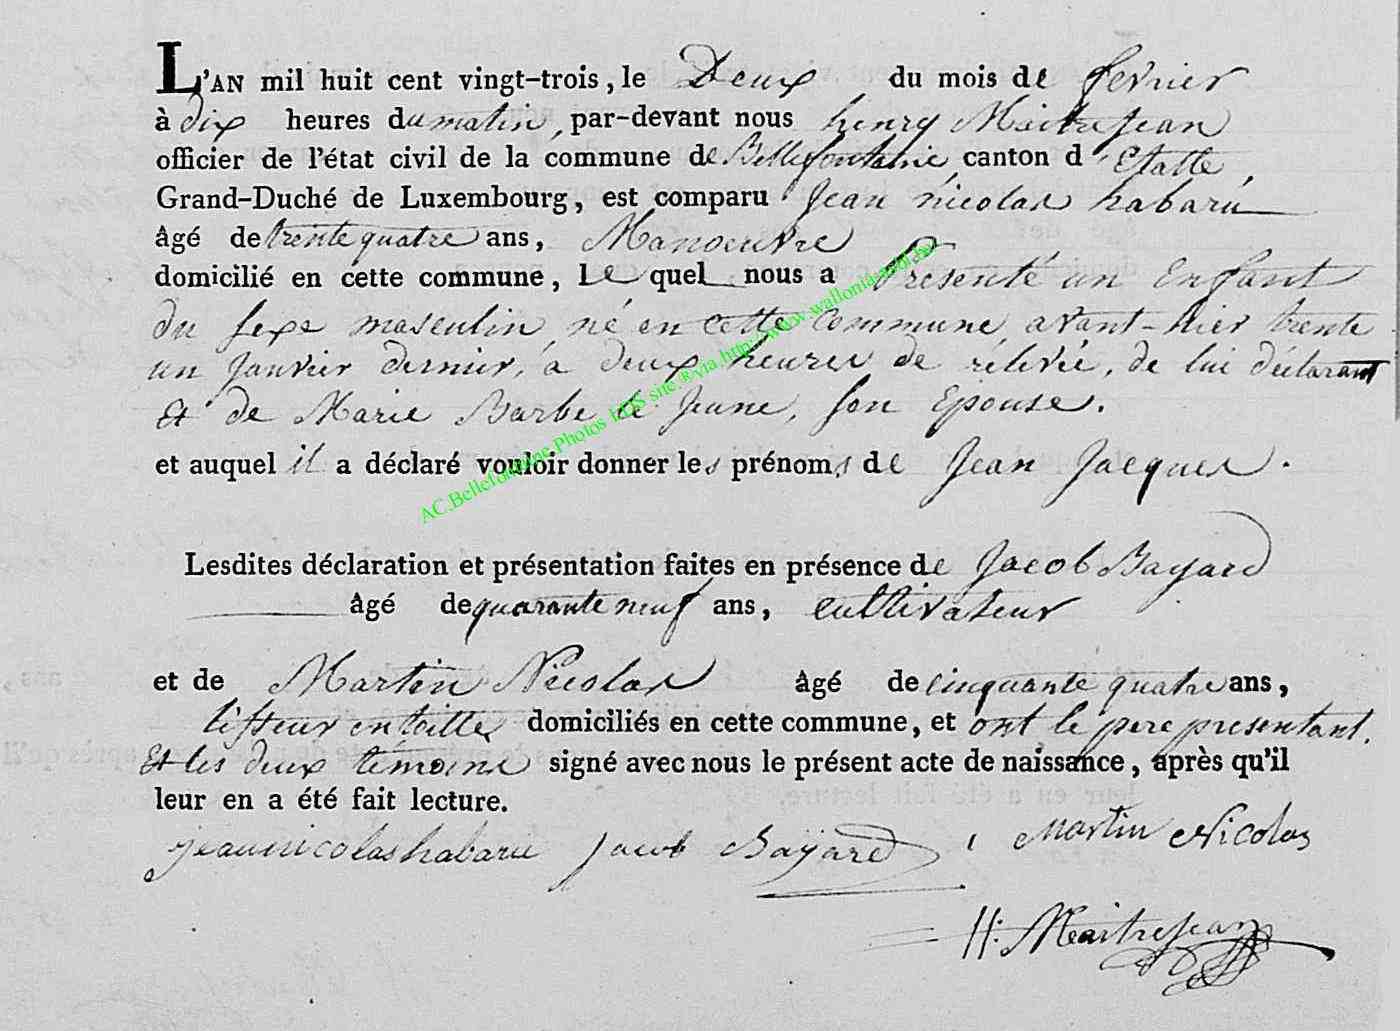 L'AN mil huit cent vingt-trois, le Deux du mois de fevrier
à dix heures du matin, par-devant nous henry Maitrejean
officier de l'état civil de la commune de Bellefontaine, canton d'Etalle,
Grand-Duché de Luxembourg, est comparu Jean nicolas habaru
âgé de trente quatre ans, Manoeuvre
domicilié en cette commune, Le quel nous a Présenté un Enfant
du sexe masculin, né en cette commune avant-hier trente
un Janvier dernier, à deux heures de rélevée, de lui déclarant
Et de Marie Barbe le Jeune, son Epouse.
et auquel il a déclaré vouloir donner les prénoms de Jean Jacques.
Lesdites déclaration et présentation faites en présence de Jacob Bayard
âgé de quarante neuf ans, cultivateur
et de Martin Nicolas âgé de cinquante quatre ans,
tisseur en toilles domiciliés en cette commune, et ont le pere presentant.
Et les deux témoins signé avec nous le présent acte de naissance, après qu'il
leur en a été fait lecture.
jeannicolashabaru Jacob Bayard, Martin Nicolas
H: Maitrejean
AC.Bellefontaine.Photos LDS site.®via.http://www.wallonia-asbl.be